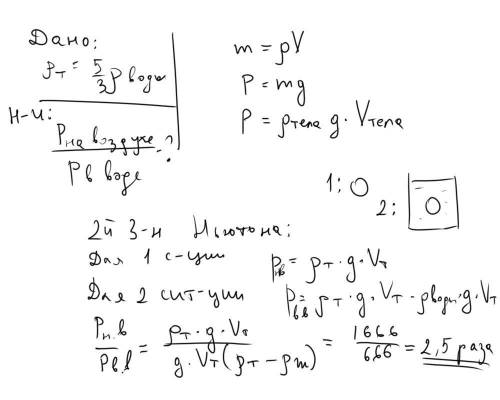 Дано:
ρт = 5/3 ρ воды
Н-и:
Pна воздухе / Pв воде - ?
m = ρV
P = mg
P = ρтела g · Vтела
1:
2:
2й З-н Ньютона:
Для 1 с-уции Pнв = ρт · g · Vт
Для 2 сит-уции Pвв = ρт · g · Vт - ρводы · g · Vт
Pн.в / Pв.в = ρт · g · Vт / g · Vт (ρт - ρm) = 1666 / 666 = 2,5 раза